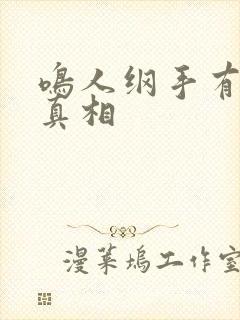 鸣人纲手有
真相
漫菜坞工作室